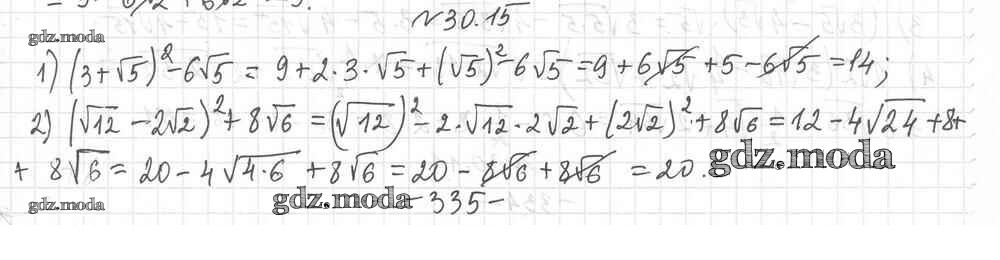 №30.15
gdz.moda
1) (3+√5)²-6√5 = 9+2·3·√5+(√5)²-6√5=9+6√5+5-6√5=14;
2) (√12-2√2)²+8√6=(√12)²-2·√12·2√2+(2√2)²+8√6=12-4√24+8+
+ 8√6=20-4√4·6+8√6=20-8√6+8√6=20.
gdz.moda
gdz.moda gdz.moda -335-